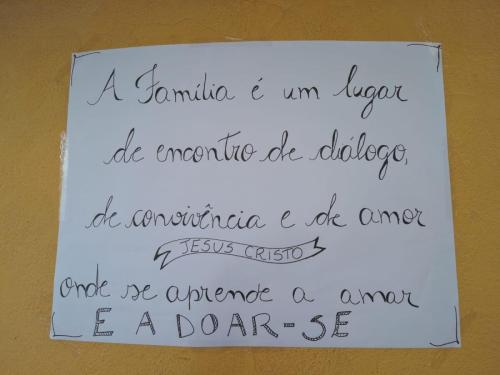 A Família é um lugar
de encontro de diálogo,
de convivência e de amor
JESUS CRISTO
onde se aprende a amar
E A DOAR-SE